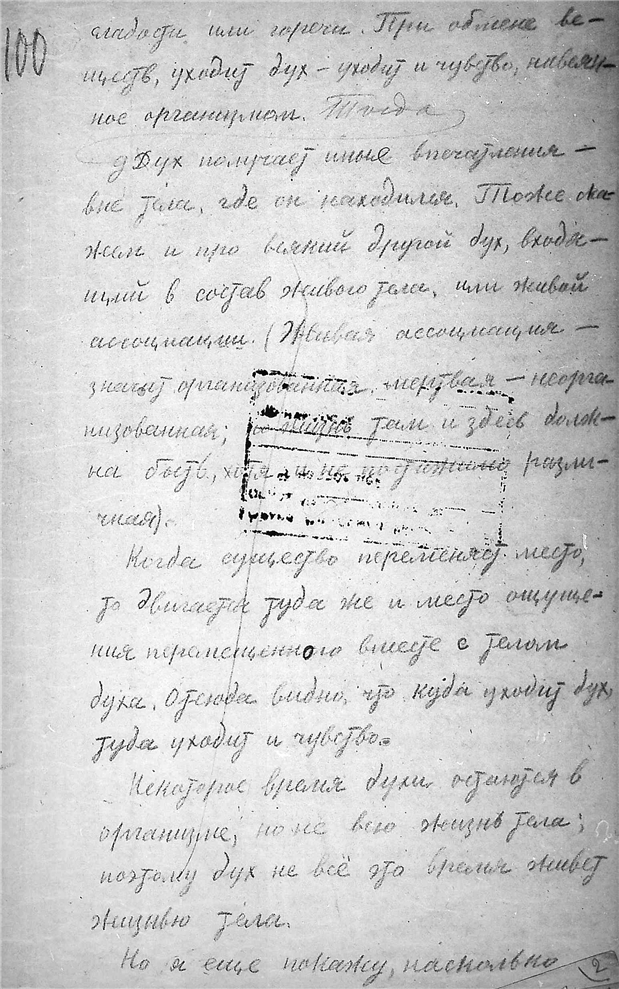 100
сладости или горечи. При обмене ве-
ществ, уходит дух – уходит и чувство, навеян-
ное организмом. Тогда
Дух получает иные впечатления –
вне тела, где он находился. Тоже ска-
жем и про всякий другой дух, входя-
щий в состав живого тела, или живой
ассоциации. (Живая ассоциация –
значит организованная, мертвая – неорга-
низованная; жизнь там и здесь долж-
на быть, хотя и не постижимо разли-
чная).
Когда существо переменяет место,
то двигается туда же и место ощуще-
ния перемещенного вместе с телом
духа. Отсюда видно, что куда уходит дух,
туда уходит и чувство.
Некоторое время духи остаются в
организме, но не всю жизнь тела;
поэтому дух не всё это время живет
жизнью тела.
Но я еще покажу, насколько
2